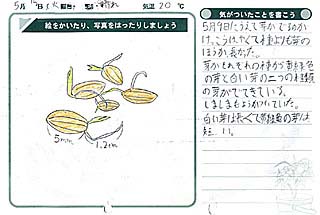 5月 日(火) 晴れ 気温 20 ℃
絵をかいたり、写真をはったりしましょう
5mm
1.2cm
気がついたことを書こう
5月9日にうえて芽がでるのが
種よりも芽の
ほうが長かった。
芽がそれぞれの種から黄緑色
の芽と白い芽の二つの種類
の芽がでてきている。
しましまもようがついていた。
白い芽は長くて黄緑色の芽は
短い。